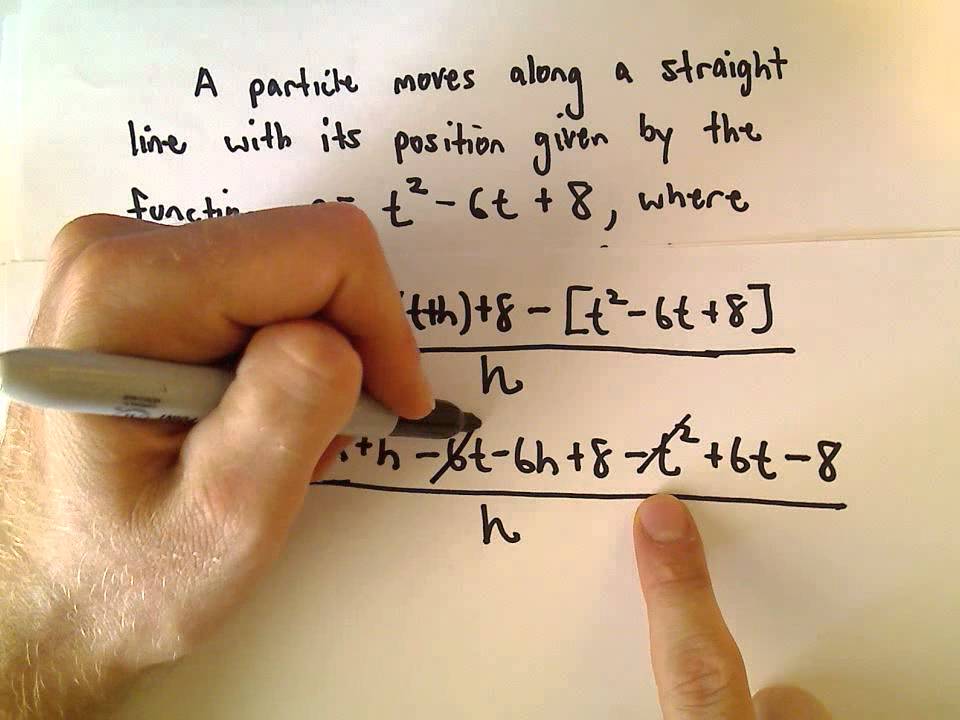 A particle moves along a straight
line with its position given by the
t² - 6t + 8, where
(t+h)+8 - [t² - 6t + 8]
h
+h - 6t - 6h + 8 - t² + 6t - 8
h